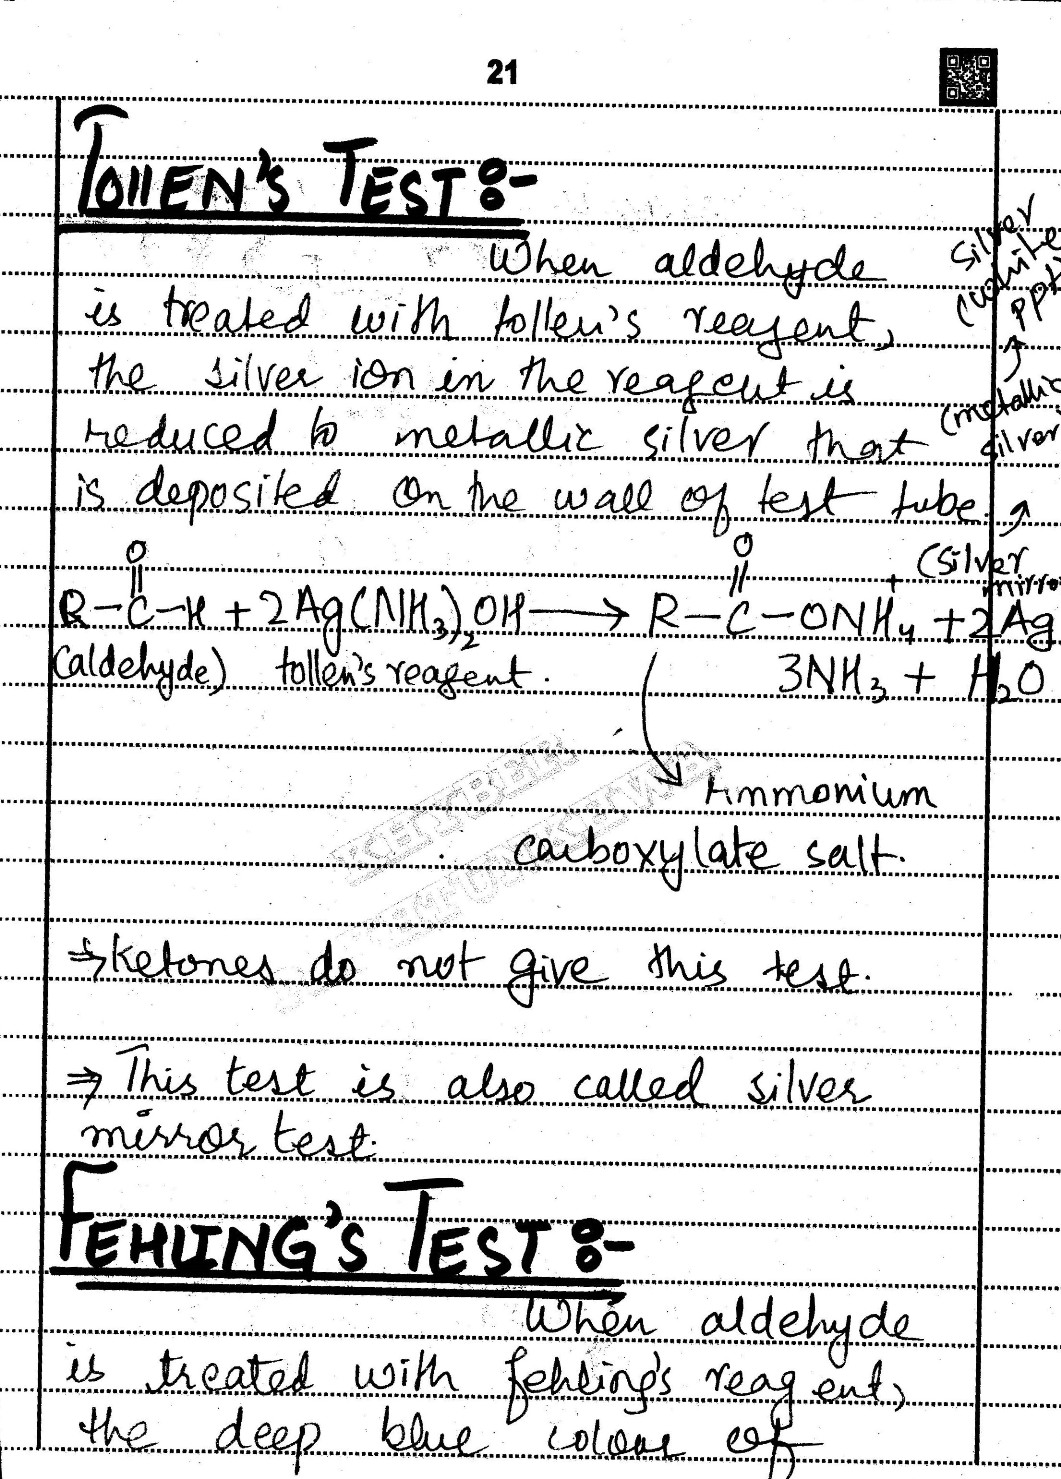 21
TollEN's TEST:-
When aldehyde
is treated with tollen's reagent,
the silver ion in the reagent is
reduced to metallic silver that
is deposited on the wall of test tube.
silver
(white
ppt)
(metallic
silver
(silver
mirror
O
||
R-C-H + 2Ag(NH3)2OH → R-C-ONH4 + 2Ag
O
||
+
(aldehyde) tollen's reagent. 3NH3 + H2O
Ammonium
carboxylate salt.
KHYBER
⇒ Ketones do not give this test.
⇒ This test is also called silver
mirror test.
FEHLING'S TEST:-
When aldehyde
is treated with fehling's reagent,
the deep blue colour of